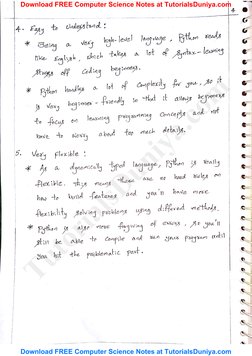 Download FREE Computer Science Notes at TutorialsDuniya.com
4
4. Easy to Understand :
* Being a very high-level language, Python reads
like English, which takes a lot of Syntax-learning
stress off coding beginners.
* Python handles a lot of Complexity for you, so it
is very beginner-friendly in that it allows beginners
to focus on learning programming Concepts and not
have to worry about too much details.
5. Very Flexible :
* As a dynamically typed language, Python is really
flexible. This means there are no hard rules on
how to build features and you'll have more
flexibility solving problems using different methods.
* Python is also more forgiving of errors, so you'll
still be able to compile and run your program until
you hit the problematic part.
Download FREE Computer Science Notes at TutorialsDuniya.com